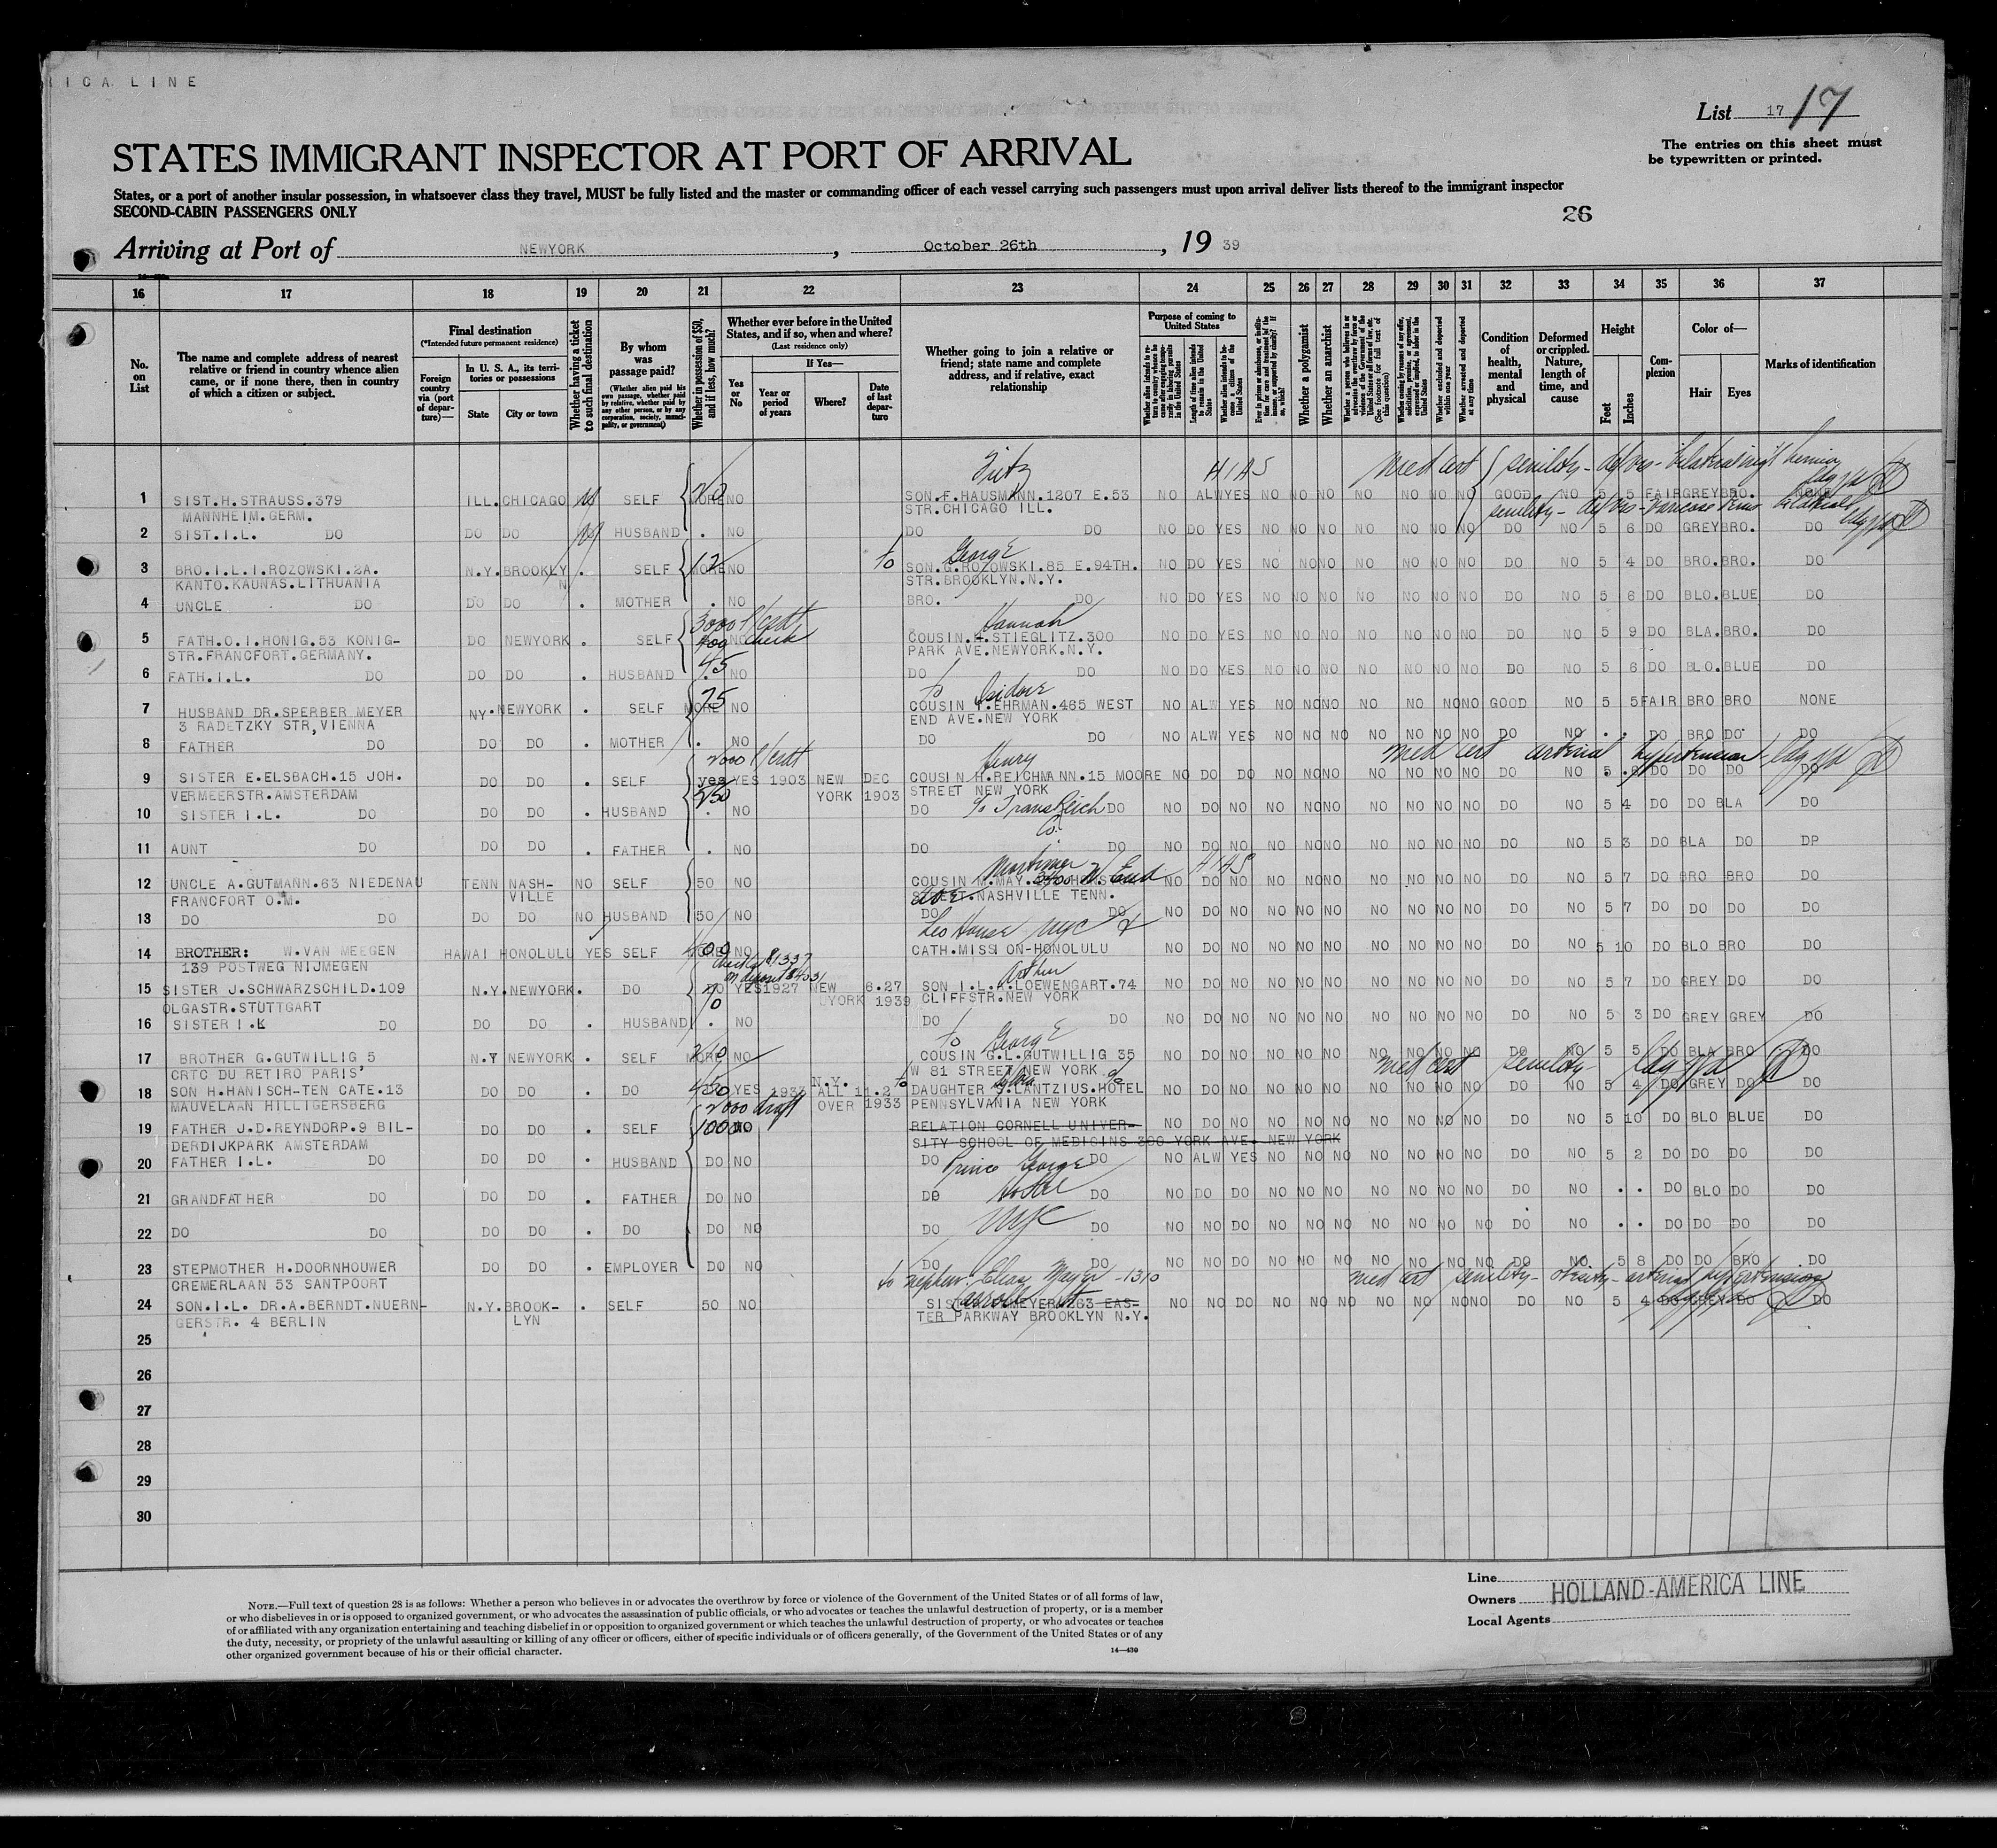 ICA LINE
List 17 17
The entries on this sheet must
be typewritten or printed.
STATES IMMIGRANT INSPECTOR AT PORT OF ARRIVAL
States, or a port of another insular possession, in whatsoever class they travel, MUST be fully listed and the master or commanding officer of each vessel carrying such passengers must upon arrival deliver lists thereof to the immigrant inspector
SECOND-CABIN PASSENGERS ONLY
26
Arriving at Port of NEWYORK, October 26th, 19 39
16 17 18 19 20 21 22 23 24 25 26 27 28 29 30 31 32 33 34 35 36 37
No. on List
The name and complete address of nearest relative or friend in country whence alien came, or if none there, then in country of which a citizen or subject.
Final destination
(*Intended future permanent residence)
Foreign country via (port of departure)—
In U. S. A., its territories or possessions
State City or town
Whether having a ticket to such final destination
By whom was passage paid?
(Whether alien paid his own passage, whether paid by relative, whether paid by any other person, or by any corporation, society, municipality, or government)
Whether in possession of $50, and if less, how much?
Whether ever before in the United States, and if so, when and where?
(Last residence only)
Yes or No
If Yes—
Year or period of years
Where?
Date of last departure
Whether going to join a relative or friend; state name and complete address, and if relative, exact relationship
Purpose of coming to United States
Whether a polygamist
Whether an anarchist
Condition of health, mental and physical
Deformed or crippled. Nature, length of time, and cause
Height
Feet Inches
Complexion
Color of—
Hair Eyes
Marks of identification
Fritz HIAS med cert senility
1 SIST.H.STRAUSS.379 ILL. CHICAGO SELF MORE NO SON.F.HAUSMANN.1207 E.53 NO ALW YES NO NO NO NO NO NO NO GOOD NO 5 5 FAIR GREY BRO. NONE
MANNHEIM.GERM. STR.CHICAGO ILL.
2 SIST.I.L. DO DO DO HUSBAND . NO DO DO NO DO YES NO NO NO NO NO NO NO DO NO 5 6 DO GREY BRO. DO
George
3 BRO.I.L.I.ROZOWSKI.2A. N.Y. BROOKLY . SELF MORE NO to SON.G.ROZOWSKI.85 E.94TH. NO DO YES NO NO NO NO NO NO NO DO NO 5 4 DO BRO. BRO. DO
KANTO.KAUNAS.LITHUANIA N STR.BROOKLYN.N.Y.
4 UNCLE DO DO DO . MOTHER . NO BRO. DO NO DO YES NO NO NO NO NO NO NO DO NO 5 6 DO BLO. BLUE DO
Hannah
5 FATH.O.I.HONIG.53 KONIG- DO NEWYORK . SELF NO COUSIN.H.STIEGLITZ.300 NO DO YES NO NO NO NO NO NO NO DO NO 5 9 DO BLA. BRO. DO
STR.FRANCFORT.GERMANY. PARK AVE.NEWYORK.N.Y.
45
6 FATH.I.L. DO DO DO . HUSBAND . NO DO DO NO DO YES NO NO NO NO NO NO NO DO NO 5 6 DO BLO. BLUE DO
75 to Isidore
7 HUSBAND DR.SPERBER MEYER NY. NEWYORK . SELF MORE NO COUSIN I.EHRMAN.465 WEST NO ALW YES NO NO NO NO NO NO NO GOOD NO 5 5 FAIR BRO BRO NONE
3 RADETZKY STR,VIENNA END AVE.NEW YORK
8 FATHER DO DO DO . MOTHER . NO DO DO NO ALW YES NO NO NO NO NO NO NO DO NO . . DO BRO DO DO
Henry med cert arterial hypertension
9 SISTER E.ELSBACH.15 JOH. DO DO . SELF yes YES 1903 NEW DEC COUSIN H.REICHMANN.15 MOORE NO DO DO NO NO NO NO NO NO NO DO NO 5 .6 DO DO DO DO
VERMEERSTR.AMSTERDAM 250 YORK 1903 STREET NEW YORK
10 SISTER I.L. DO DO DO . HUSBAND . NO DO DO NO DO NO NO NO NO NO NO NO NO DO NO 5 4 DO DO BLA DO
11 AUNT DO DO DO . FATHER . NO DO DO NO DO NO NO NO NO NO NO NO NO DO NO 5 3 DO BLA DO DP
Mortimer HIAS
12 UNCLE A.GUTMANN.63 NIEDENAU TENN NASH- NO SELF 50 NO COUSIN M.MAY. W. End NO DO NO NO NO NO NO NO NO NO DO NO 5 7 DO BRO BRO DO
FRANCFORT O.M. VILLE STREET.NASHVILLE TENN.
13 DO DO DO DO NO HUSBAND 50 NO DO DO NO DO NO NO NO NO NO NO NO NO DO NO 5 7 DO DO DO DO
Leo House NYC
14 BROTHER: W.VAN MEEGEN HAWAI HONOLULU YES SELF 400 NO CATH.MISSION-HONOLULU NO DO NO NO NO NO NO NO NO NO DO NO 5 10 DO BLO BRO DO
139 POSTWEG NIJMEGEN
Arthur
15 SISTER J.SCHWARZSCHILD.109 N.Y. NEWYORK. DO DO YES 1927 NEW 6.27 SON I.L.A.LOEWENGART.74 NO DO NO NO NO NO NO NO NO NO DO NO 5 7 DO GREY DO DO
OLGASTR.STUTTGART YORK 1939 CLIFFSTR.NEW YORK
16 SISTER I.L DO DO DO . HUSBAND . NO DO DO NO DO NO NO NO NO NO NO NO NO DO NO 5 3 DO GREY GREY DO
to George
17 BROTHER G.GUTWILLIG 5 N.Y NEWYORK . SELF MORE NO COUSIN G.L.GUTWILLIG 35 NO DO NO NO NO NO NO NO NO NO DO NO 5 5 DO BLA BRO DO
CRTC DU RETIRO PARIS' W 81 STREET NEW YORK
med cert senility
18 SON H.HANISCH-TEN CATE.13 DO DO . DO YES 1933 N.Y. ALL 11.2 to DAUGHTER S.LANTZIUS.HOTEL NO DO NO NO NO NO NO NO NO NO DO NO 5 4 DO GREY DO DO
MAUVELAAN HILLIGERSBERG 2000 draft OVER 1933 PENNSYLVANIA NEW YORK
19 FATHER J.D.REYNDORP.9 BIL- DO DO . SELF 1000 NO RELATION CORNELL UNIVER- NO DO NO NO NO NO NO NO NO NO DO NO 5 10 DO BLO BLUE DO
DERDIJKPARK AMSTERDAM SITY SCHOOL OF MEDICINS 300 YORK AVE. NEW YORK
20 FATHER I.L. DO DO DO . HUSBAND DO NO DO DO NO ALW YES NO NO NO NO NO NO NO DO NO 5 2 DO DO DO DO
Prince George
21 GRANDFATHER DO DO DO . FATHER DO NO DO Hotel DO NO DO DO NO NO NO NO NO NO NO DO NO . . DO BLO DO DO
22 DO DO DO DO . DO DO NO DO NYC DO NO NO DO NO NO NO NO NO NO NO DO NO . . DO DO DO DO
23 STEPMOTHER H.DOORNHOUWER DO DO . EMPLOYER DO NO DO DO NO NO DO NO NO NO NO NO NO NO DO NO 5 8 DO DO BRO DO
CREMERLAAN 53 SANTPOORT to nephew: Elias Mayer - 1310 med cert senility - obesity - arterial hypertension
24 SON.I.L. DR.A.BERNDT.NUERN- N.Y. BROOK- . SELF 50 NO Carroll St MEYER 263 EAS- NO NO DO NO NO NO NO NO NO NO DO NO 5 4 DO GREY DO DO
GERSTR. 4 BERLIN LYN TER PARKWAY BROOKLYN N.Y.
25
26
27
28
29
30
Line
Owners HOLLAND-AMERICA LINE
Local Agents
NOTE.—Full text of question 28 is as follows: Whether a person who believes in or advocates the overthrow by force or violence of the Government of the United States or of all forms of law,
or who disbelieves in or is opposed to organized government, or who advocates the assassination of public officials, or who advocates or teaches the unlawful destruction of property, or is a member
of or affiliated with any organization entertaining and teaching disbelief in or opposition to organized government or which teaches the unlawful destruction of property, or who advocates or teaches
the duty, necessity, or propriety of the unlawful assaulting or killing of any officer or officers, either of specific individuals or of officers generally, of the Government of the United States or of any
other organized government because of his or their official character.
14—430